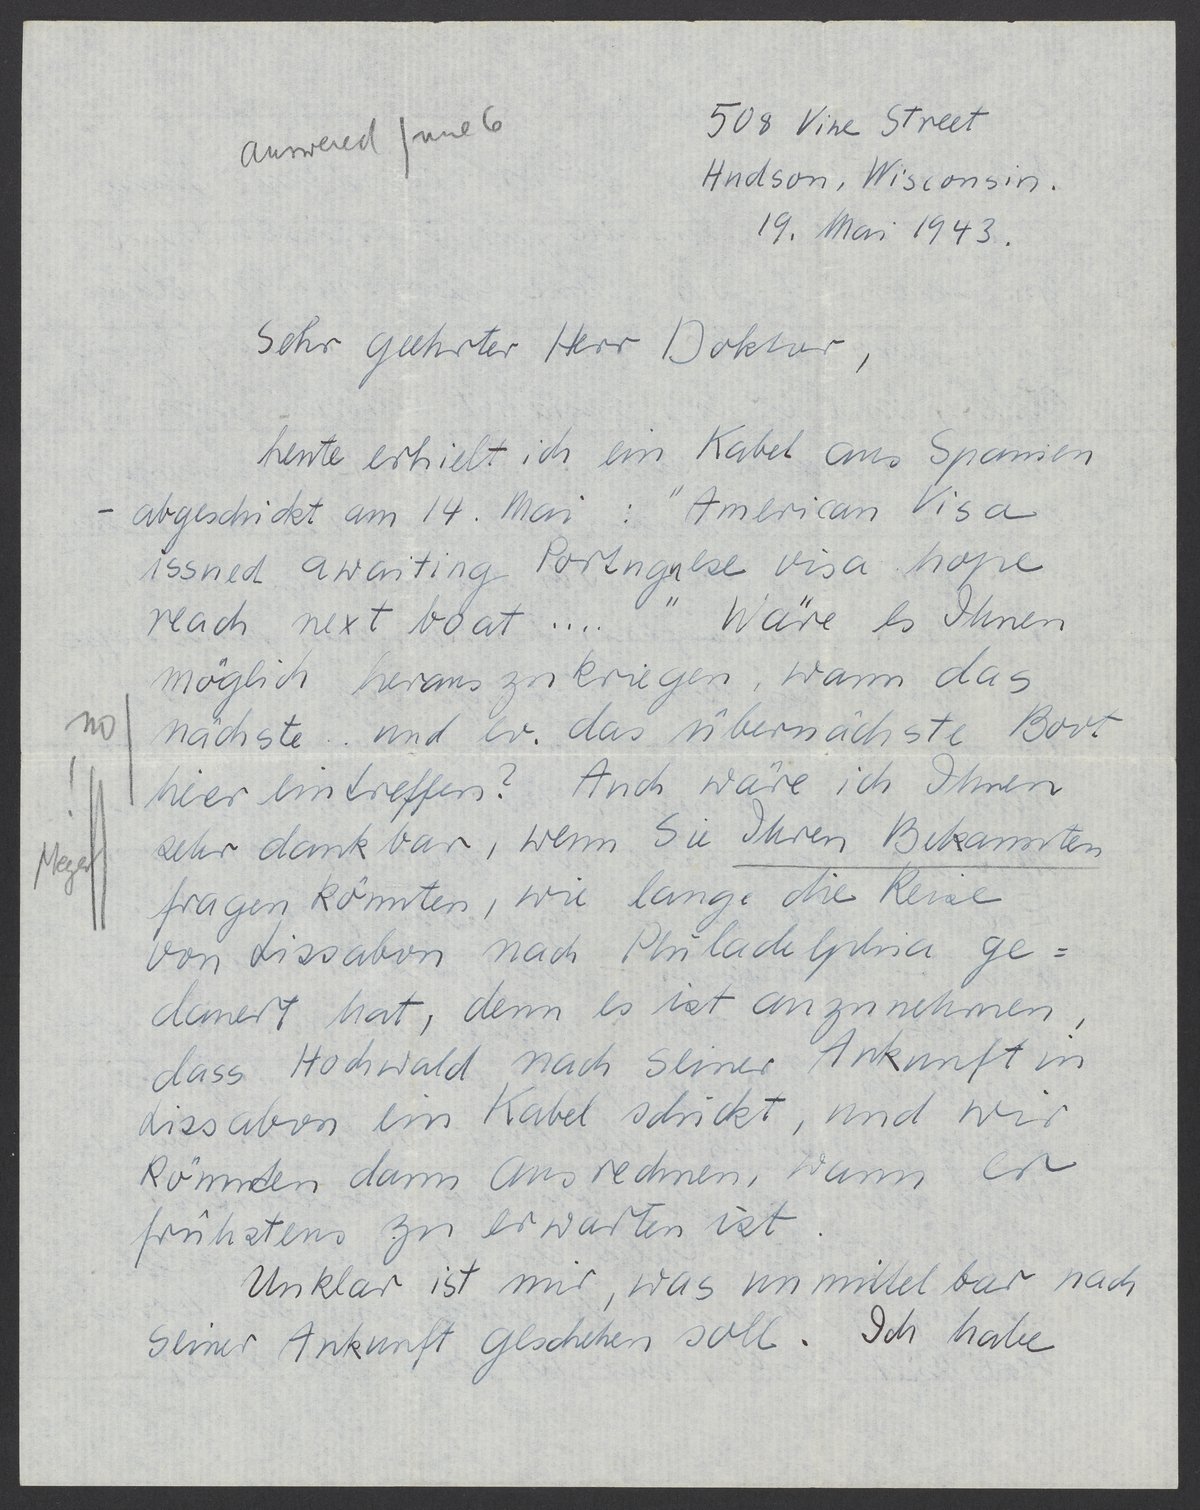 answered June 6
508 Vine Street
Hudson, Wisconsin.
19. Mai 1943.
Sehr geehrter Herr Doktor,
heute erhielt ich ein Kabel aus Spanien
- abgeschickt am 14. Mai : "American Visa
issued awaiting Portuguese visa hope
reach next boat .... " Wäre es Ihnen
möglich herauszukriegen, wann das
nächste .. und ev. das übernächste Boot
hier eintreffen? Auch wäre ich Ihnen
no!
sehr dankbar, wenn Sie Ihren Bekannten
Meyer
fragen könnten, wie lange die Reise
von Lissabon nach Philadelphia ge=
dauert hat, denn es ist anzunehmen,
dass Hochwald nach seiner Ankunft in
Lissabon ein Kabel schickt, und wir
könnten dann ausrechnen, wann er
frühstens zu erwarten ist.
Unklar ist mir, was unmittelbar nach
seiner Ankunft geschehen soll. Ich habe